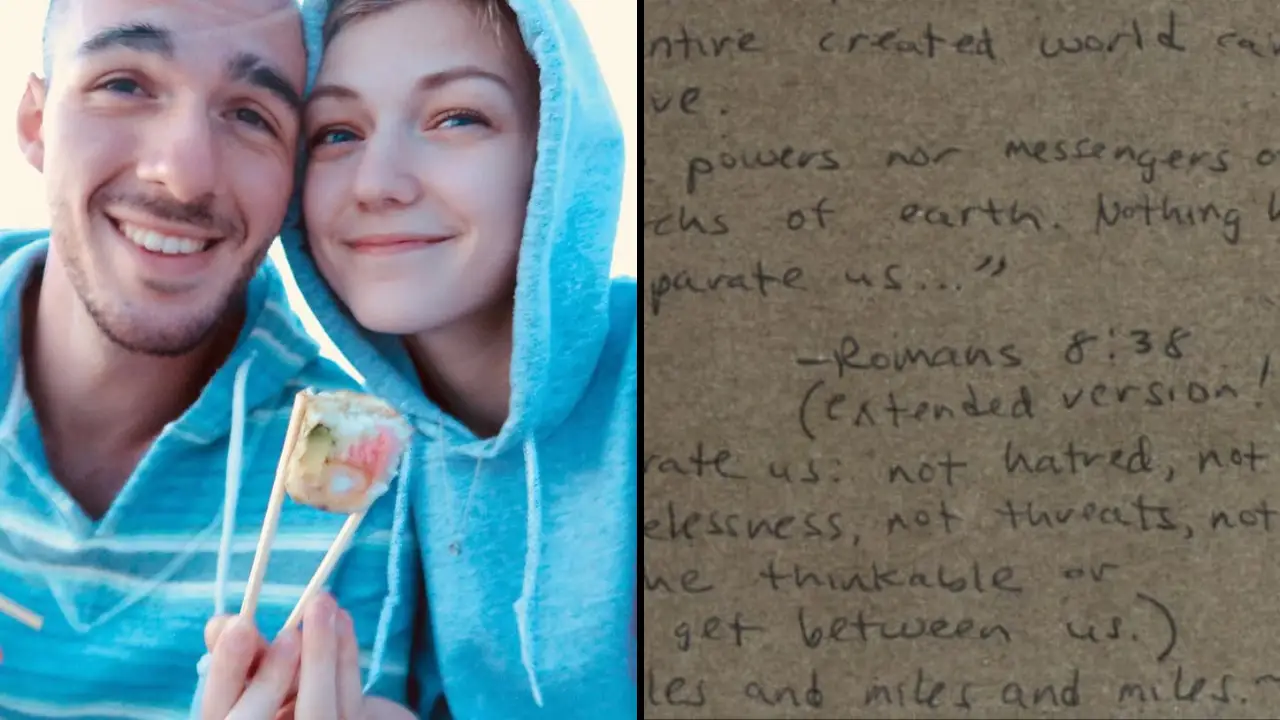 ntire created world can
ve.
powers nor messengers o
chs of earth. Nothing h
parate us..."
-Romans 8:38
(extended version!
rate us: not hatred, not
elessness, not threats, not
ne thinkable or
get between us.)
les and miles and miles.~